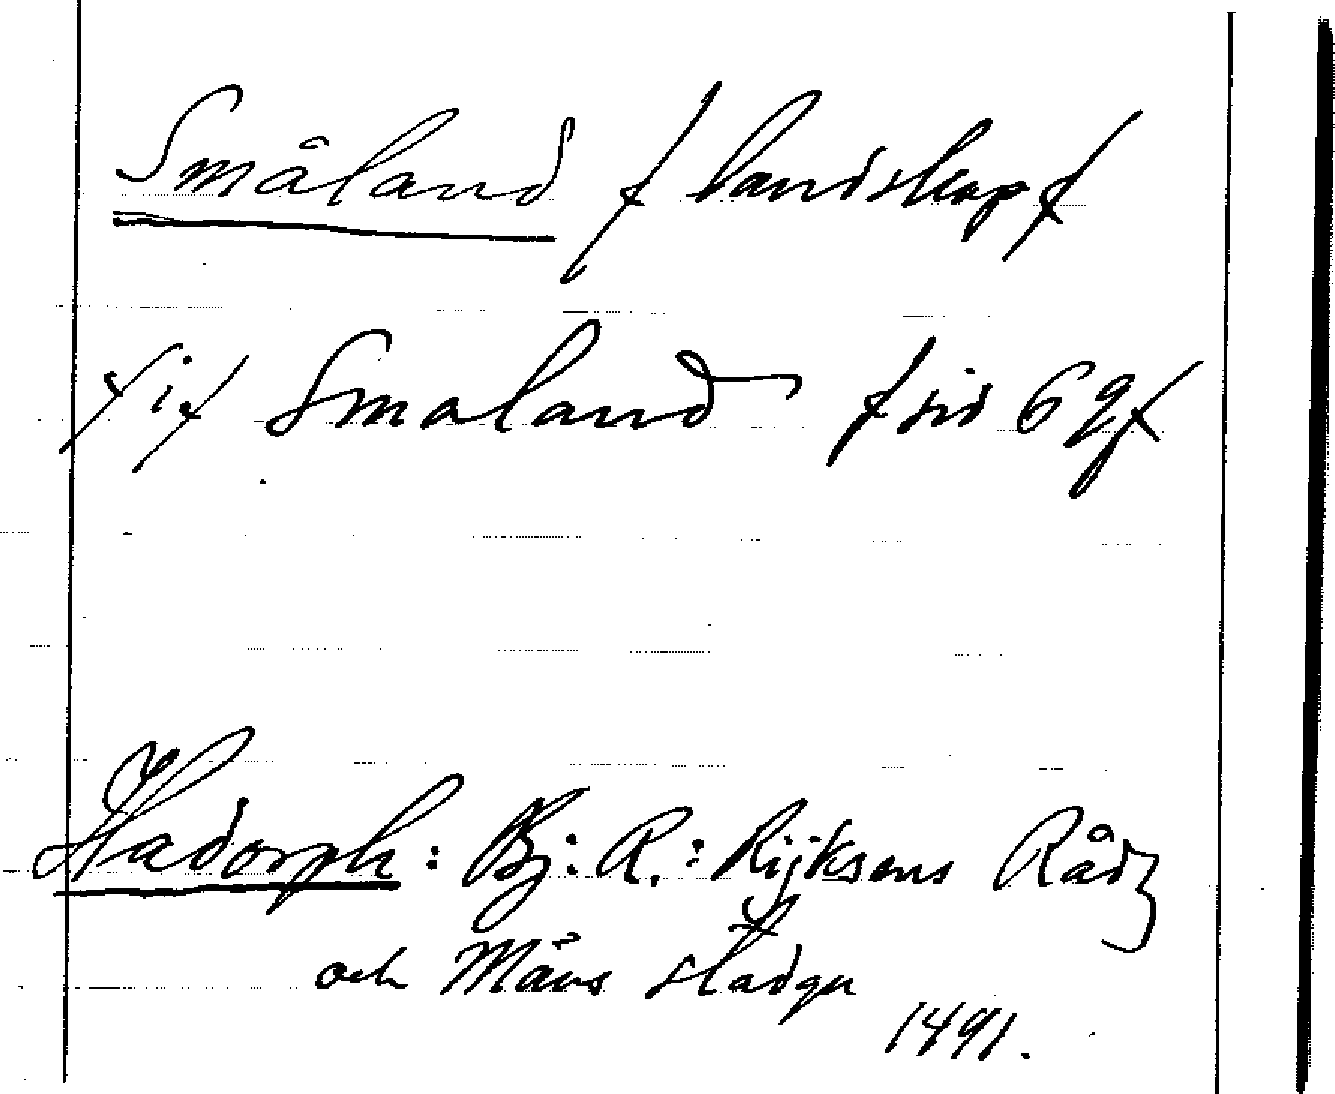 Småland / landskap /
/ i / Smaland / sid 69 /
Hadorph: Bj: R.: Rijksens Rådz
och Mäns stadga
1491.